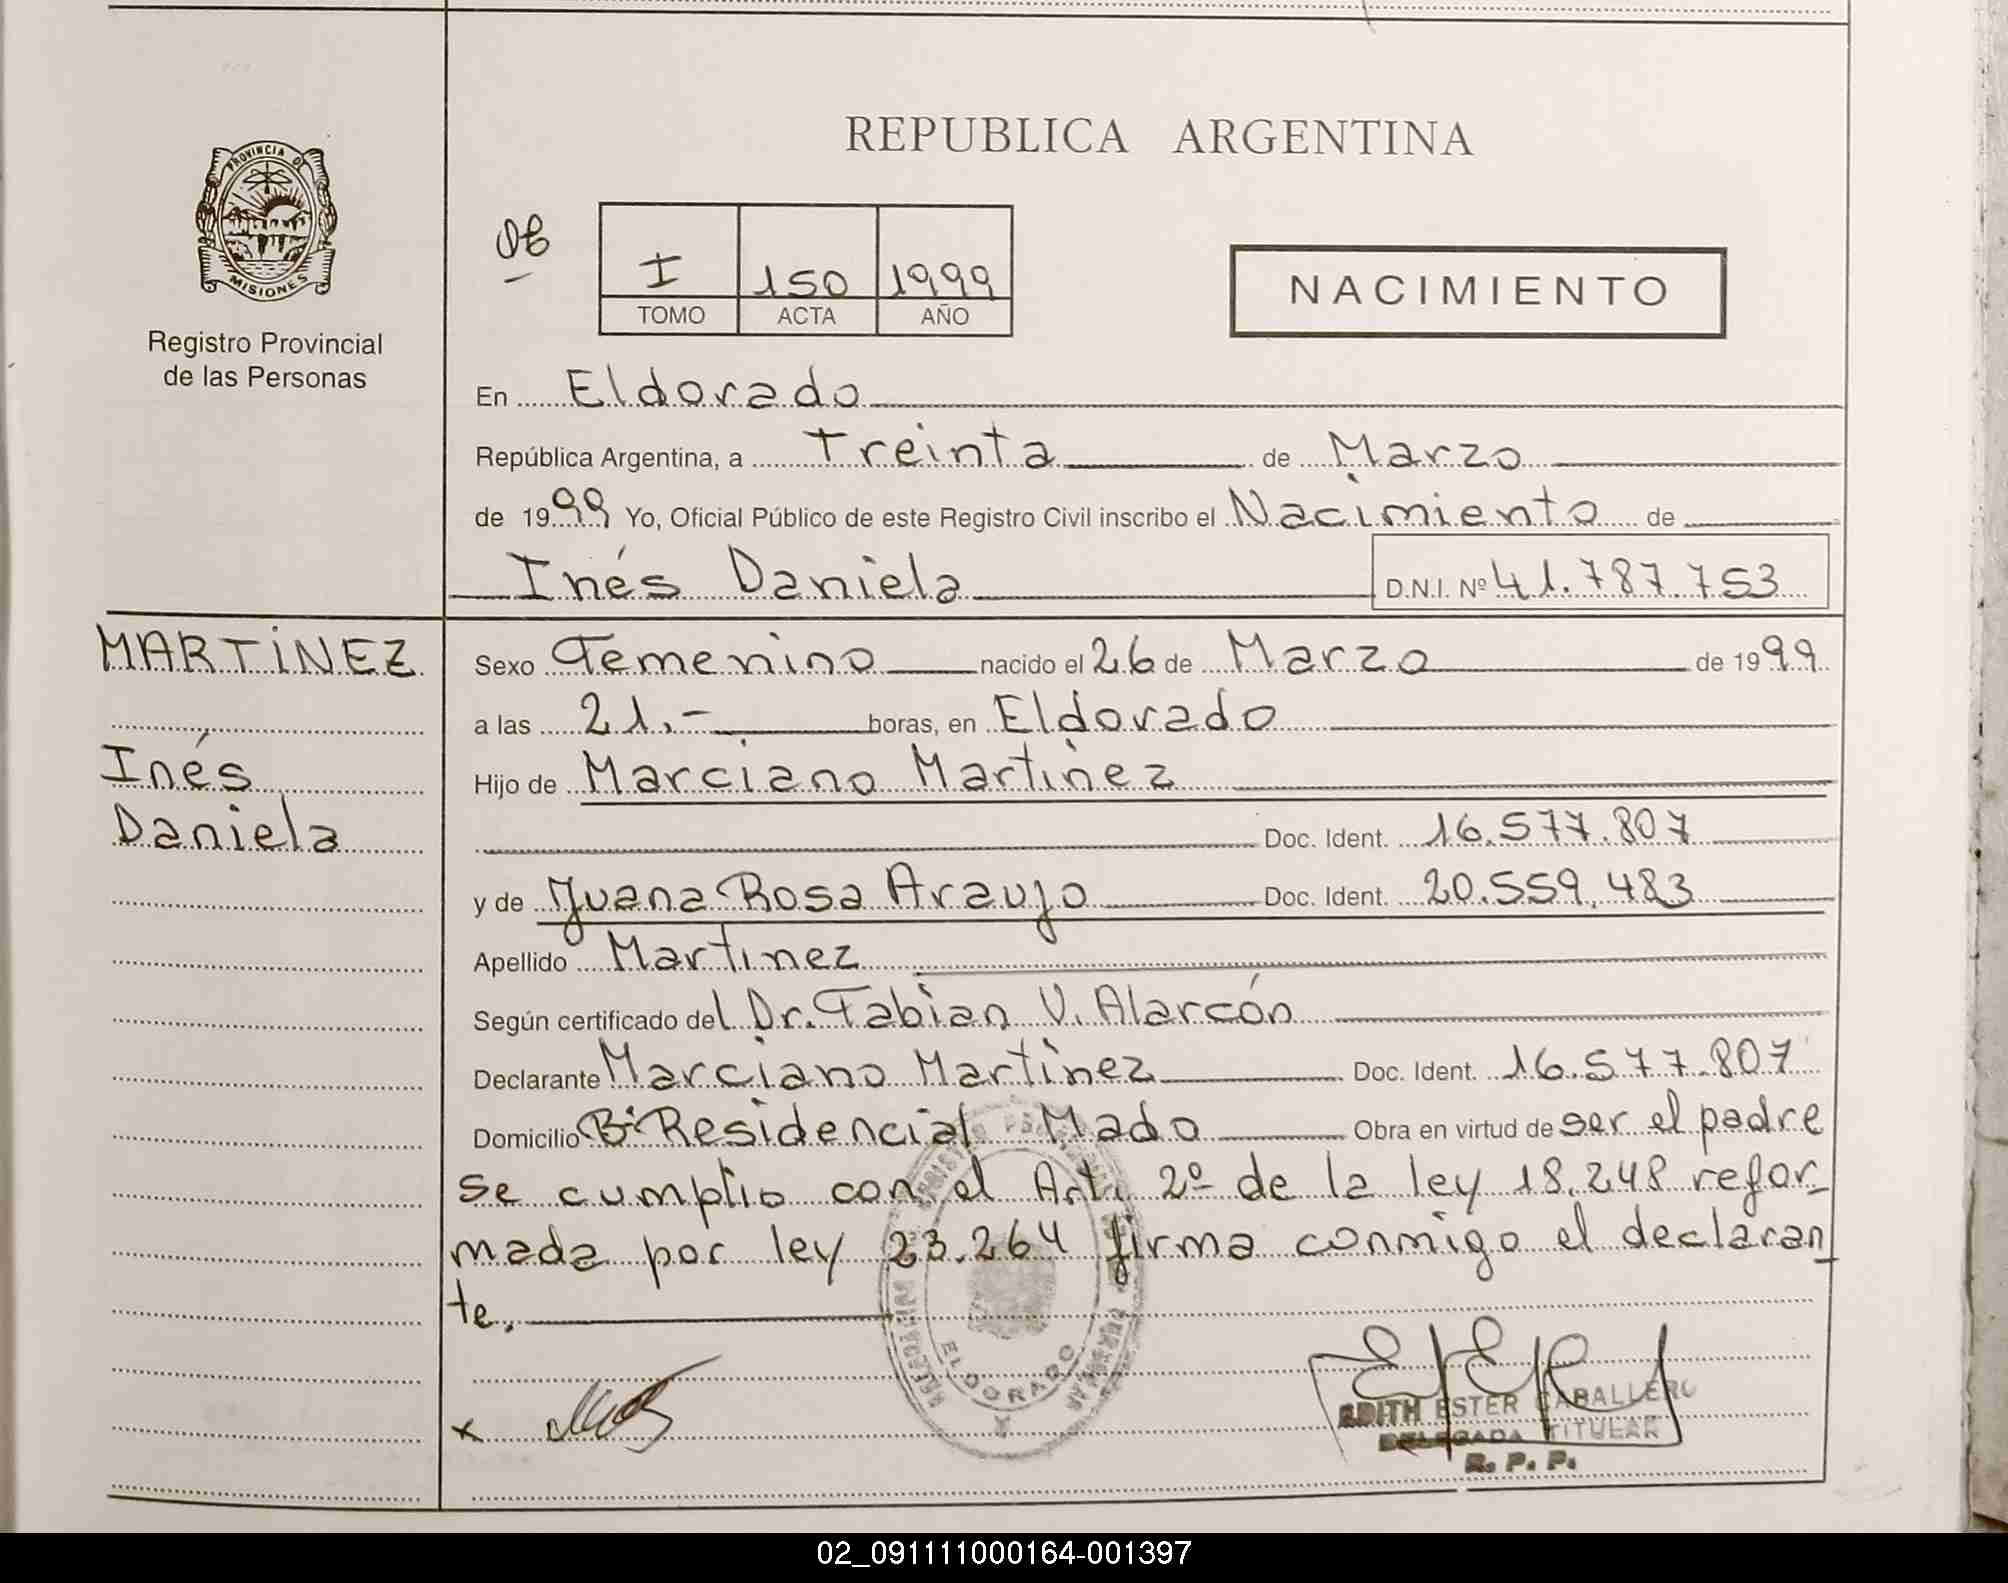 REPUBLICA ARGENTINA
PROVINCIA DE
MISIONES
Registro Provincial
de las Personas
I 150 1999
TOMO ACTA AÑO
NACIMIENTO
En Eldorado
República Argentina, a Treinta de Marzo
de 1999 Yo, Oficial Público de este Registro Civil inscribo el Nacimiento de
Inés Daniela D.N.I. Nº 41.787.753
MARTÍNEZ
Inés
Daniela
Sexo Femenino nacido el 26 de Marzo de 1999
a las 21.- horas, en Eldorado
Hijo de Marciano Martinez
Doc. Ident. 16.577.807
y de Juana Rosa Araujo Doc. Ident. 20.559.483
Apellido Martinez
Según certificado del Dr. Fabian V. Alarcón
Declarante Marciano Martinez Doc. Ident. 16.577.807
Domicilio Bº Residencial Mado Obra en virtud de ser el padre
se cumplio con el Art. 2º de la ley 18.248 refor-
mada por ley 23.264 firma conmigo el declaran
te.
ELDORADO
x
EDITH ESTER CABALLERO
DELEGADA TITULAR
R. P. P.
02_091111000164-001397